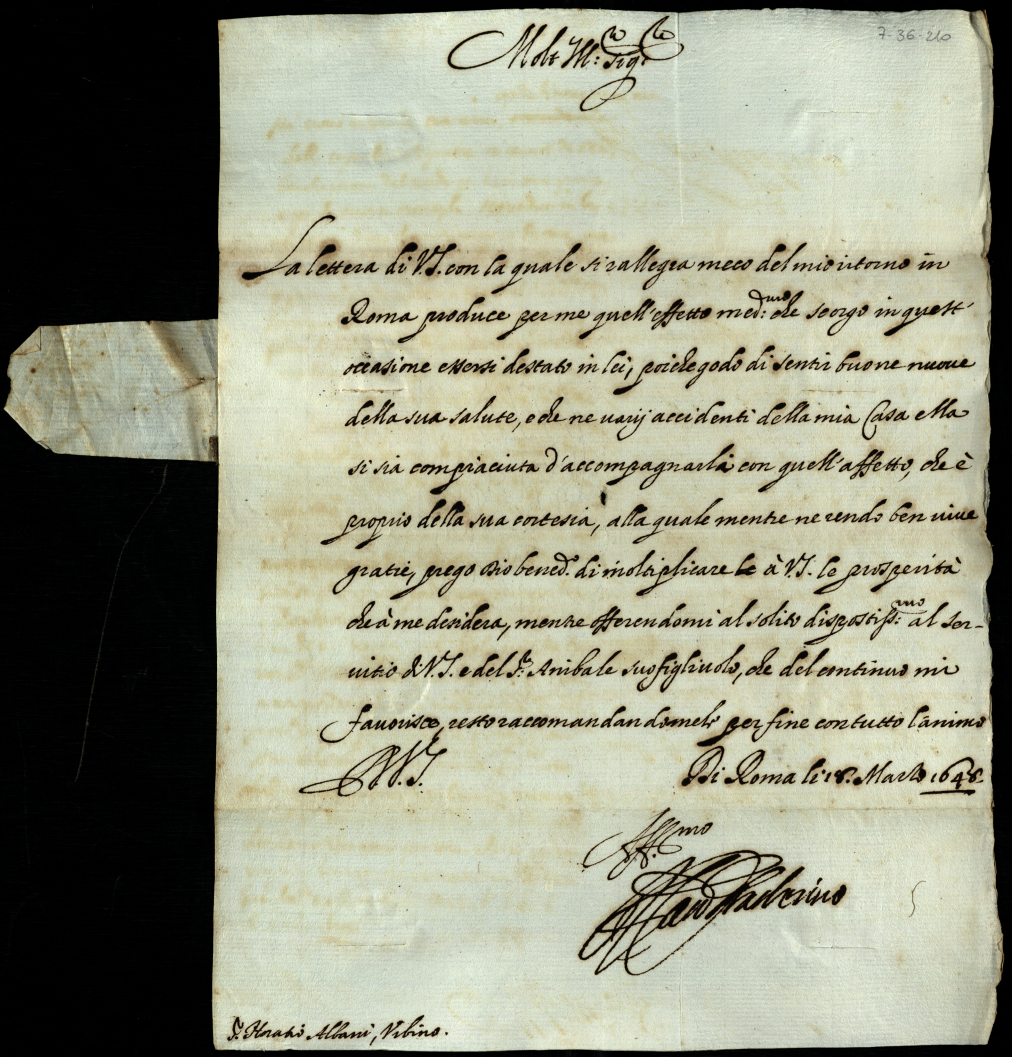 7-36-210
Molt Ill:re Sig.re
La lettera di V.S. con la quale si rallegra meco del mio ritorno in
Roma produce per me quell'effetto med:mo che scorgo in quest'
occasione essersi destato in lei, poiche godo di sentir buone nuove
della sua salute, e che ne varij accidenti della mia Casa ella
si sia compiaciuta d'accompagnarla con quell'affetto, che è
proprio della sua cortesia, alla quale mentre ne rendo ben vive
gratie, prego Dio bened.o di moltiplicare le à V.S. le prosperità
che à me desidera, mentre offerendomi al solito dispostiss:mo al ser-
uitio di V.S. e del S.r Anibale suo figliuolo, che del continuo mi
fauorisce, resto raccomandandomele per fine con tutto l'animo
D.V.S. Di Roma li 18. Marzo 1648.
Aff.mo
S.r Horatio Albani, Vrbino.